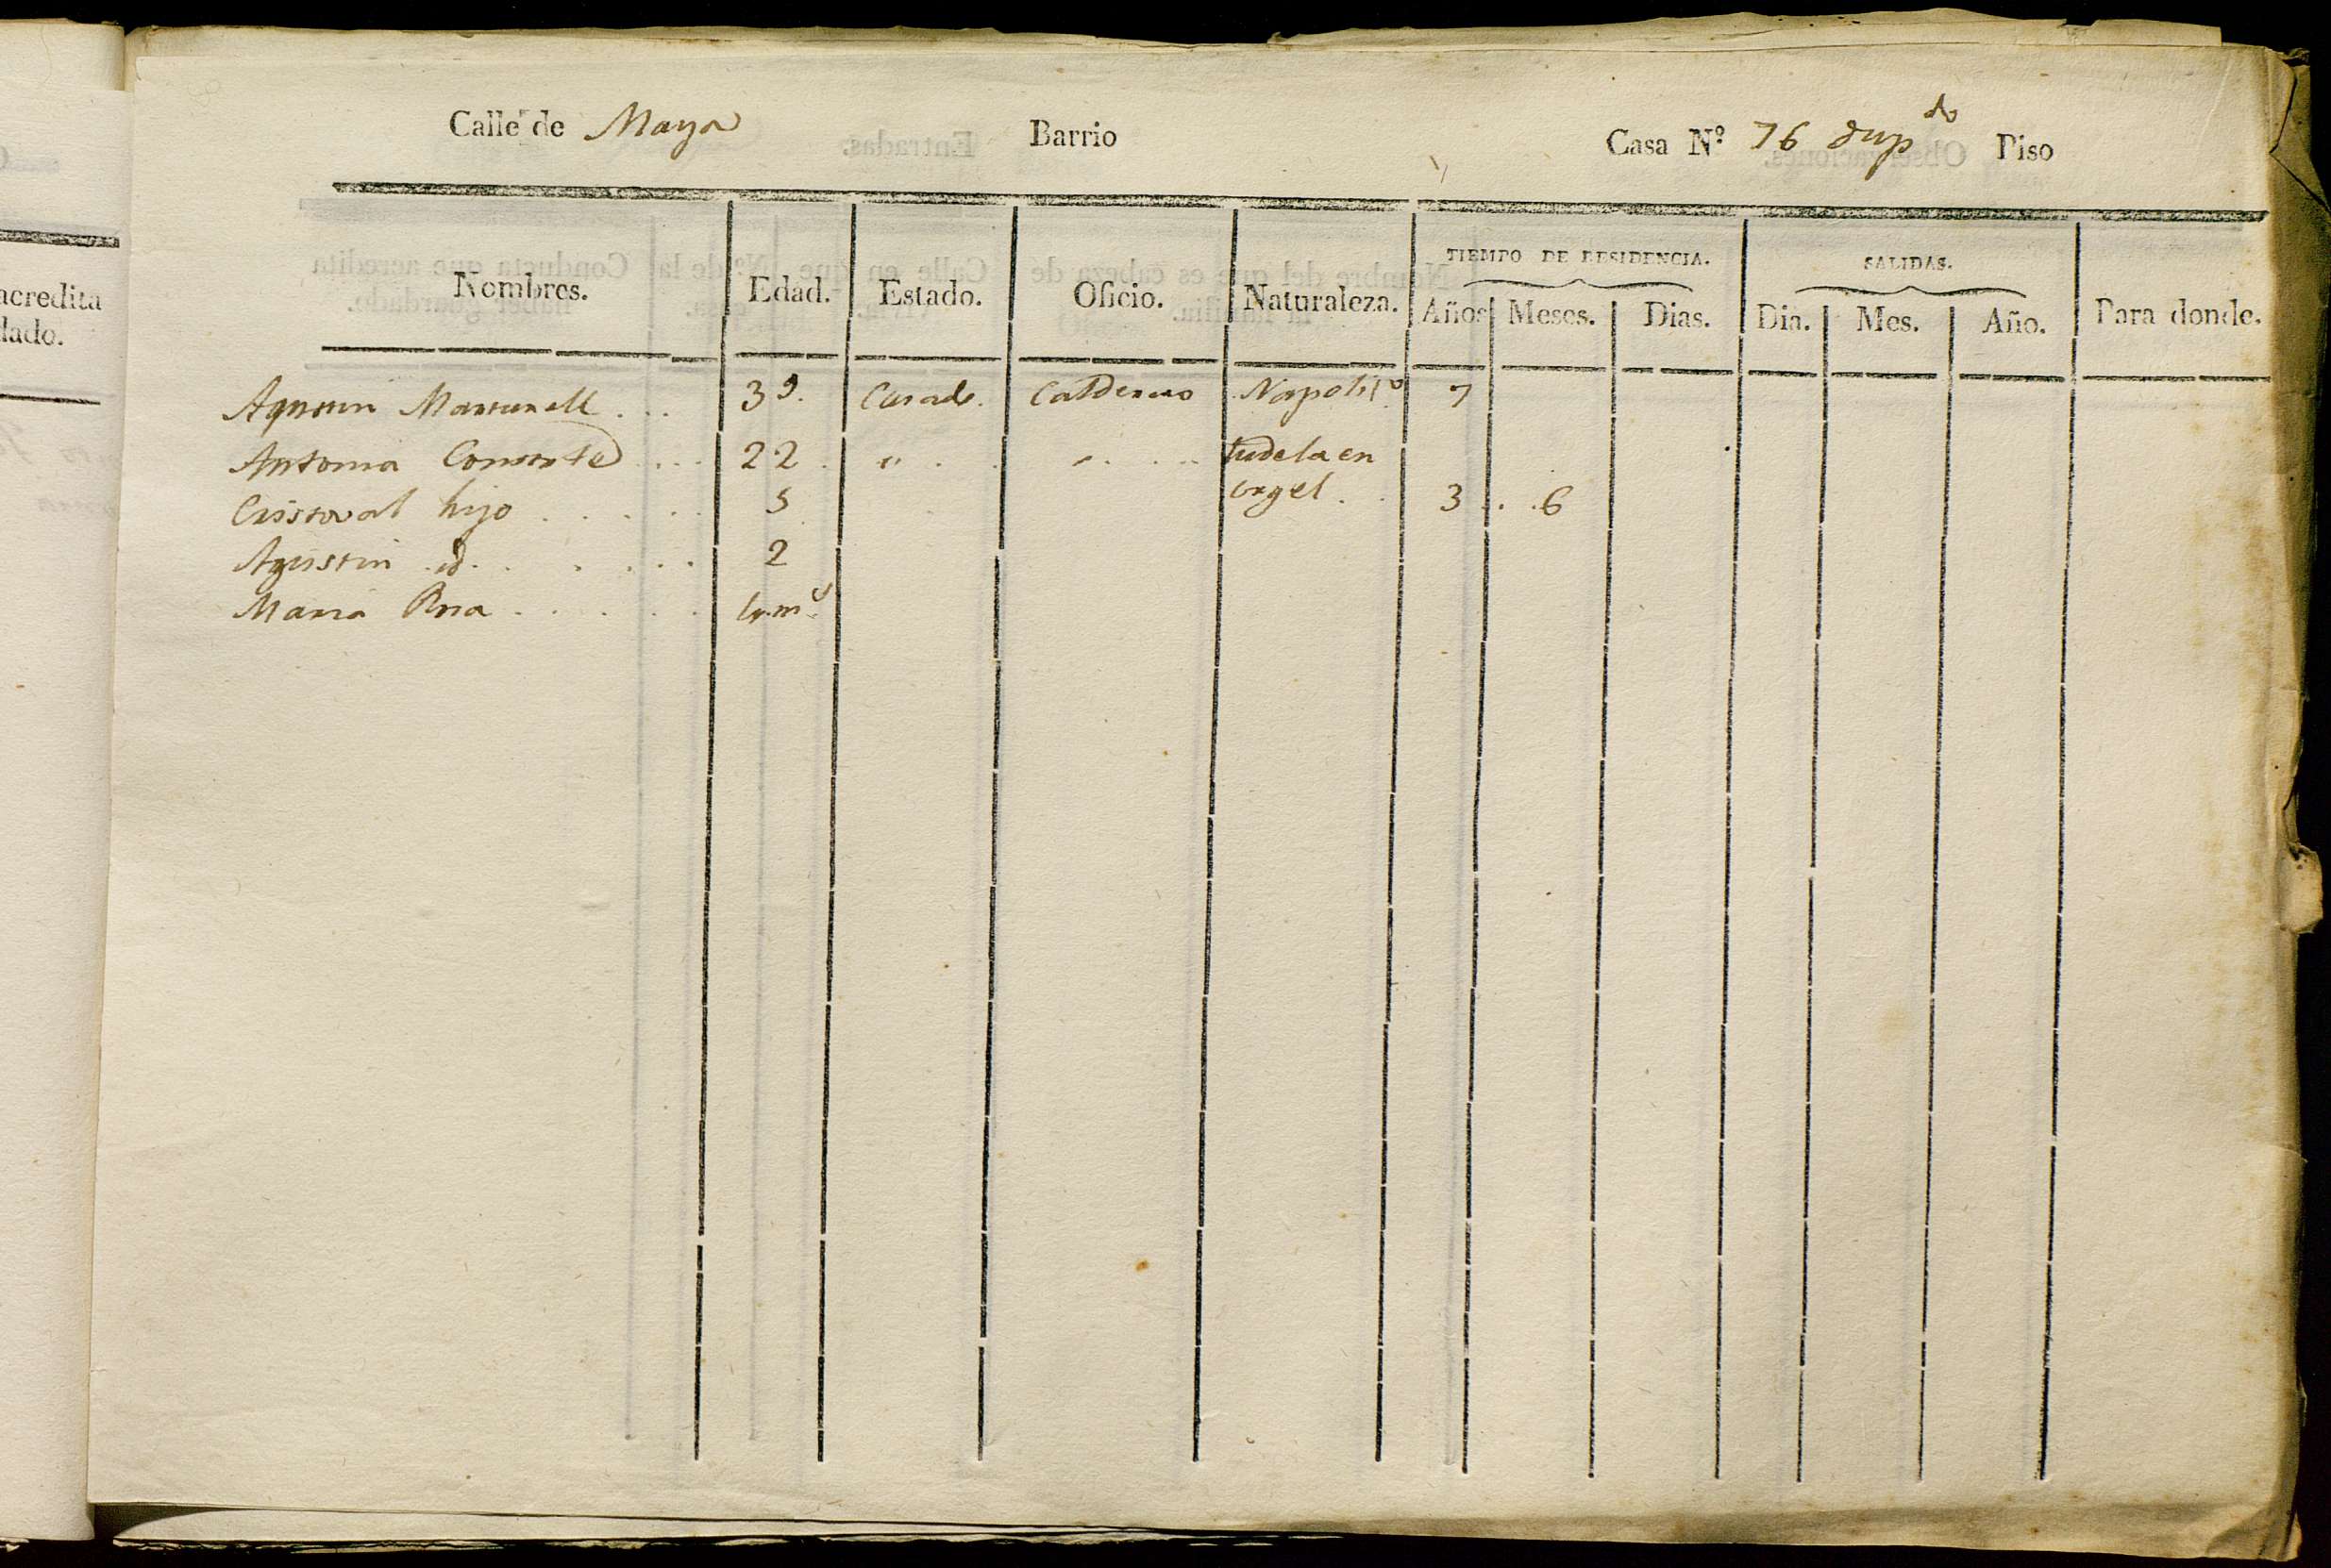 acredita
lado.
Calle de Maya Barrio Casa Nº 76 dup^do Piso
TIEMPO DE RESIDENCIA. SALIDAS.
Nombres. Edad. Estado. Oficio. Naturaleza. Años Meses. Dias. Dia. Mes. Año. Para donde.
Agustin Martinell . . . 39. Casado. Calderero Napolit^o 7
Antonia . . . 22 . " . . " . . . . tudela en
Cristoval hijo . . . . . 5 Urgel . . 3 . . . 6
Agustin . id . . . . . . 2
Maria Rosa . . . . . m^s